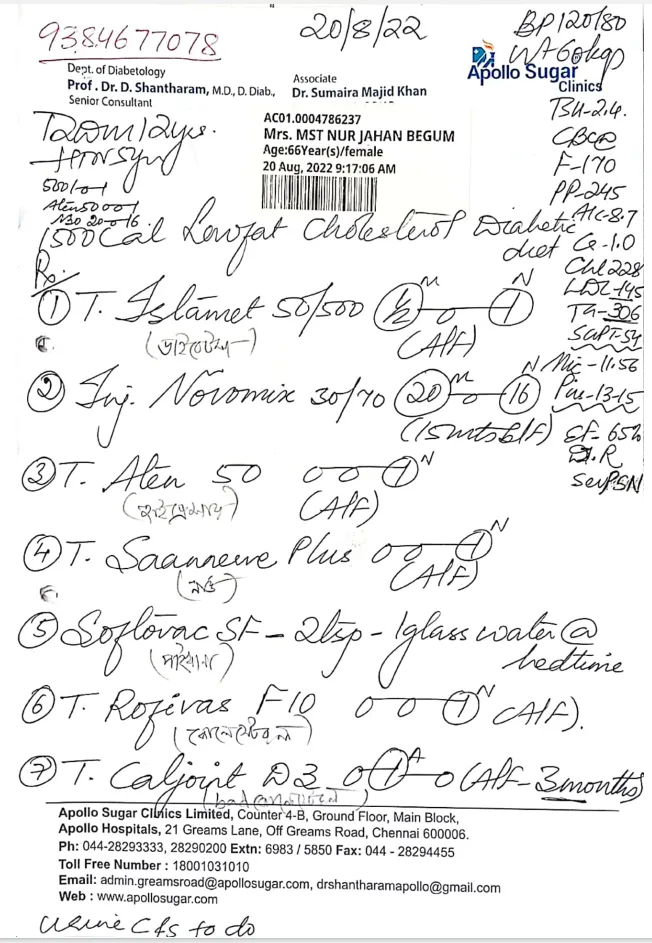 9384677078
20/8/22
BP 120/80
Wt 60kgs
Apollo Sugar
Clinics
Dept. of Diabetology
Prof. Dr. D. Shantharam, M.D., D. Diab.,
Senior Consultant
Associate
Dr. Sumaira Majid Khan
AC01.0004786237
Mrs. MST NUR JAHAN BEGUM
Age:66Year(s)/female
20 Aug, 2022 9:17:06 AM
T2DM 12yrs.
HTN 5yrs
Aten 50 001
20-0-16
F-170
PP-245
A1c-8.7
Cr-1.0
Chl 228
LDL-145
TG-306
SGPT-54
Mic-11.56
EF-65%
1500 Cal Low fat Cholesterol Diabetic
diet
Rx.
① T. Islamet 50/500 ½ M 0 1 N
(A/F)
(ডাইবেটিস)
② Inj. Novomix 30/70 20 M 0 16 N
(15mts B/F)
③ T. Aten 50 0 0 1 N
(A/F)
④ T. Plus 0 0 1 N
(A/F)
⑤ Soflovac SF - 2tsp - 1glass water @
bedtime
(পায়খানা)
⑥ T. Rozivas F10 0 0 1 N (A/F).
⑦ T. Caljoint D3 0 1 A 0 (A/F - 3months)
Apollo Sugar Clinics Limited, Counter 4-B, Ground Floor, Main Block,
Apollo Hospitals, 21 Greams Lane, Off Greams Road, Chennai 600006.
Ph: 044-28293333, 28290200 Extn: 6983 / 5850 Fax: 044 - 28294455
Toll Free Number : 18001031010
Email: admin.greamsroad@apollosugar.com, drshantharamapollo@gmail.com
Web : www.apollosugar.com
urine C&S to do